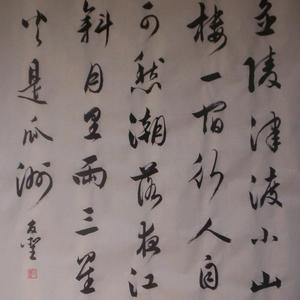 金陵津渡小山
樓一宿行人自
可愁潮落夜江
斜月里兩三星
火是瓜洲